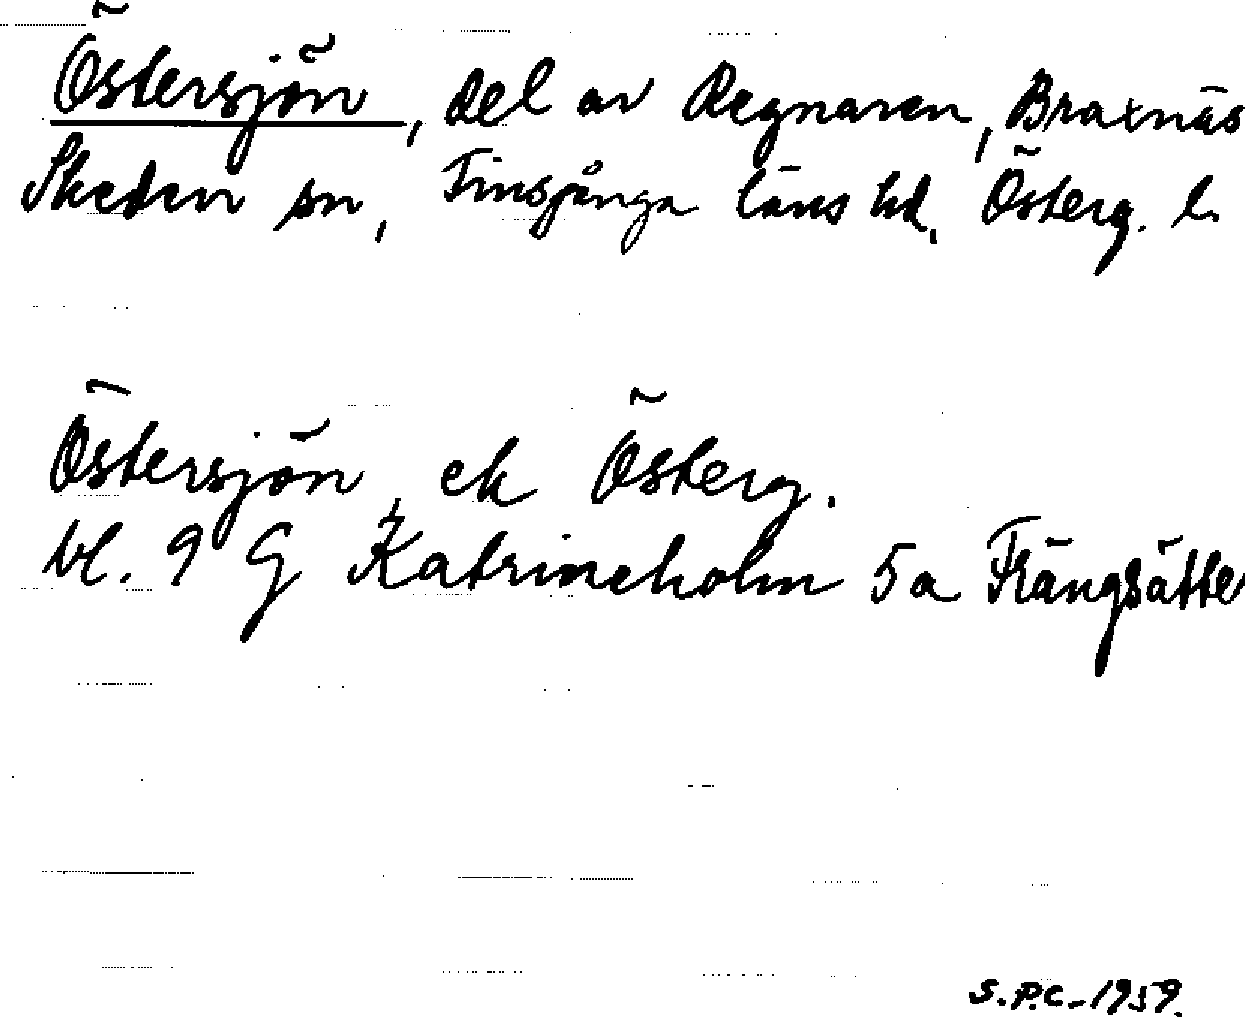 Östersjön, del av Regnaren, Braxnäs
Skedevi sn, Finspånga läns hd, Österg. l.
Östersjön, ek Österg.
bl. 9 G Katrineholm 5a Flängsätter
S.P.C. - 1959.